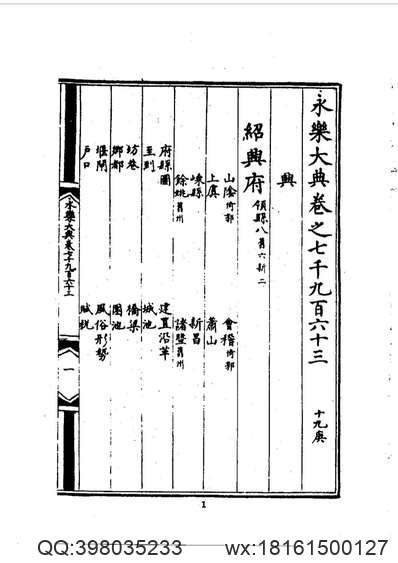 永樂大典卷之七千九百六十三 十九庚
興
紹興府 領縣八舊六新二
山陰倚郭 會稽倚郭
上虞 蕭山
嵊縣 新昌
餘姚舊州 諸暨舊州
府縣圖 建置沿革
至到 城池
坊巷 橋梁
鄉都 園池
堰閘 風俗形勢
戶口 賦稅
永樂大典卷七千九百六十三 一
1
QQ:398035233 wx:18161500127